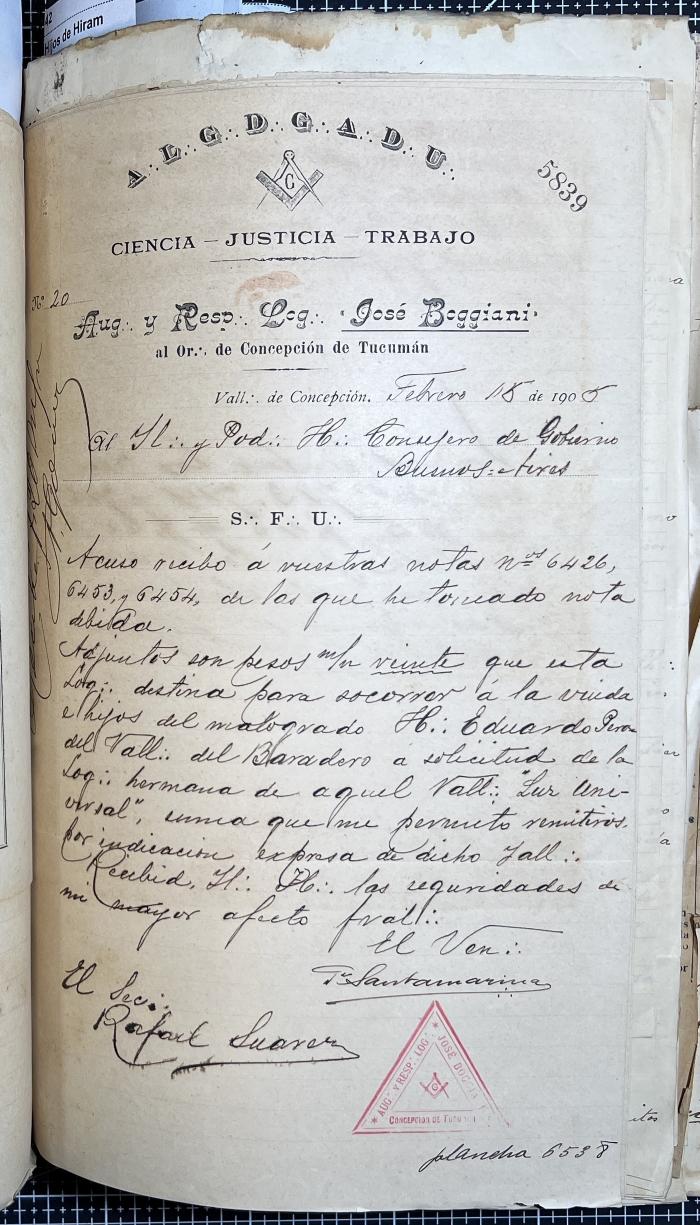 42
Hijos de Hiram
A.·. L.·. G.·. D.·. G.·. A.·. D.·. U.·.
G
5839
CIENCIA – JUSTICIA – TRABAJO
Nº 20
Aug.·. y Resp.·. Log.·. "José Boggiani"
al Or.·. de Concepción de Tucumán
Vall.·. de Concepción. Febrero 18 de 1905
Al Il.·. y Pod.·. H.·. Consejero de Gobierno
Buenos=Aires
S.·. F.·. U.·.
Acuso recibo á vuestras notas nos 6426,
6453, y 6454, de las que he tomado nota
debida.
Adjuntos son pesos m/n veinte que esta
Log.·. destina para socorrer á la viuda
é hijos del malogrado H.·. Eduardo
del Vall.·. del Baradero a solicitud de la
Log.·. hermana de aquel Vall.·. "Luz Uni-
versal", suma que me permito remitiros
por indicacion expresa de dicho Tall.·.
Recibid, Il.·. H.·. las seguridades de
mi mayor afecto fral.·.
El Ven.·.
Santamarina
El Sec.·.
Rafael Suarez
AUG.·. Y RESP.·. LOG.·. JOSÉ BOGGIANI
CONCEPCIÓN DE TUCUMÁN
plancha 6538